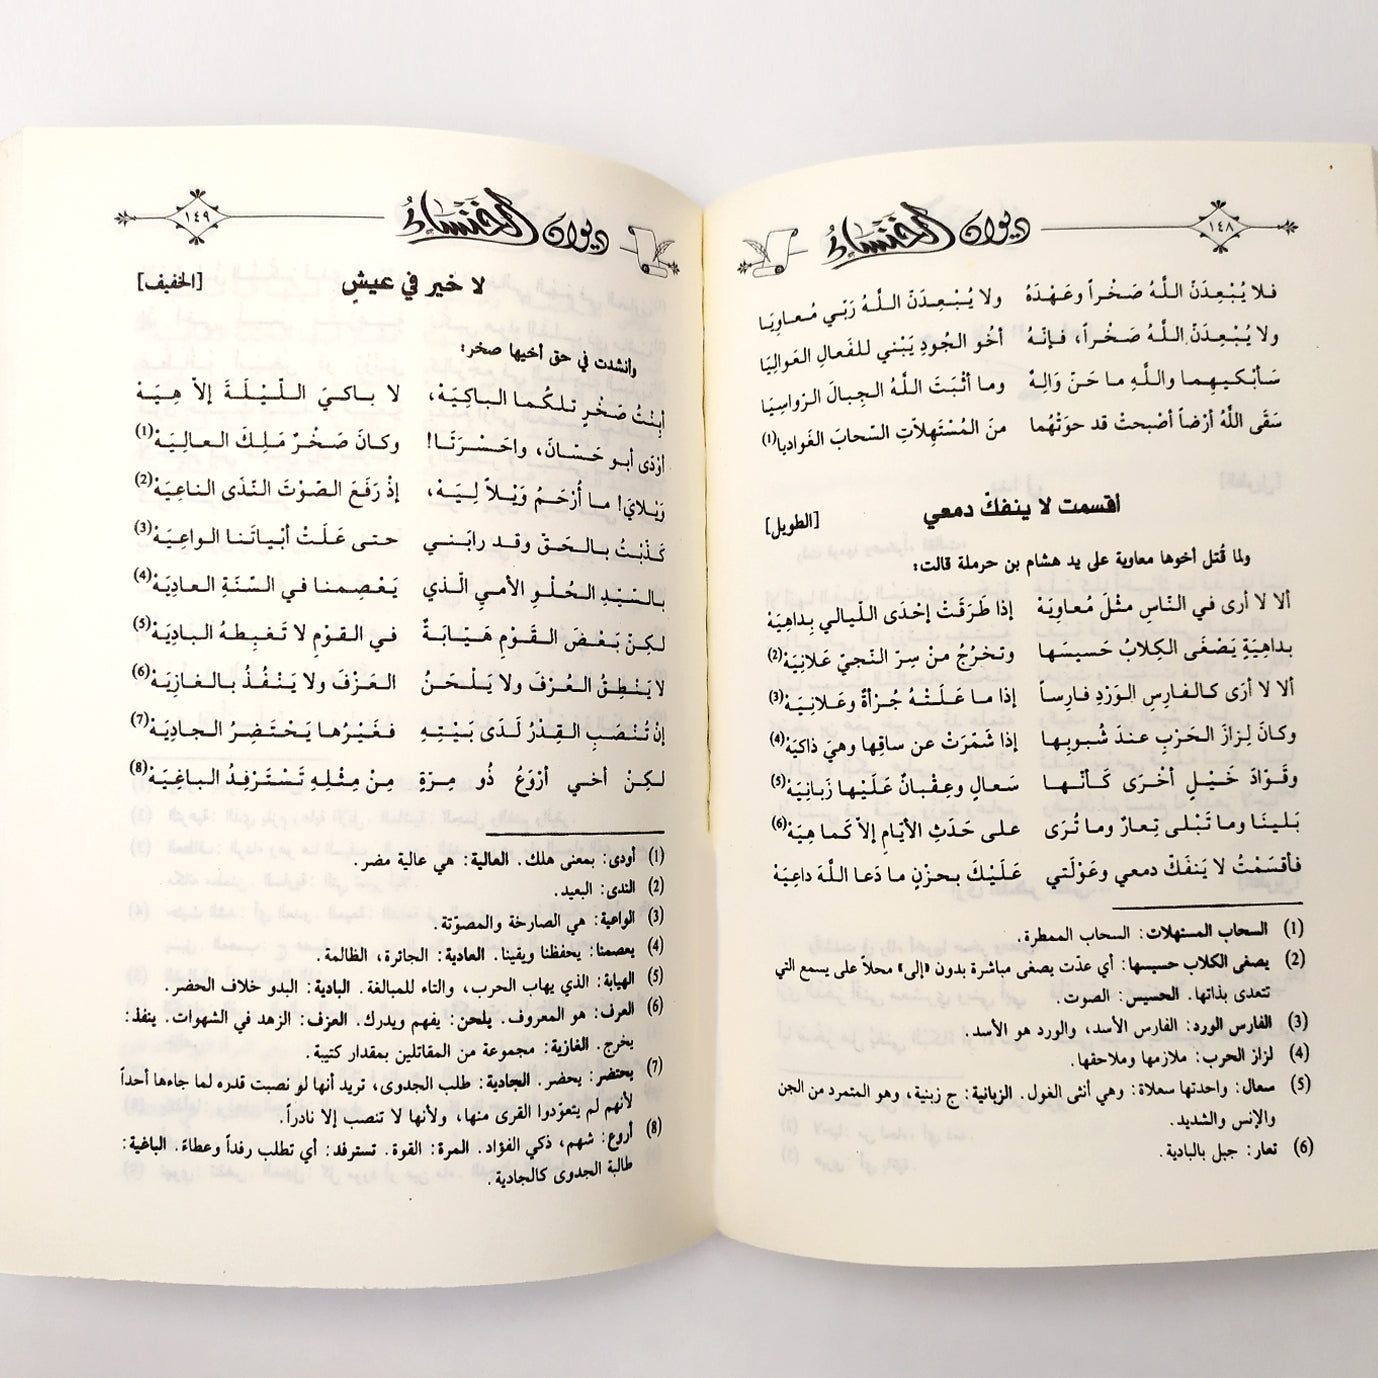 ديوان الخنساء
١٤٨
فلا يُبْعِدَنْ اللَّهُ صَخْراً وعَهْدَهُ ولا يُبْعِدَنْ اللَّهُ رَبّي مُعاوِيَا
ولا يُبْعِدَنْ اللَّهُ صَخْراً، فإنّهُ أخُو الجُودِ يَبْني للفَعالِ العَوالِيَا
سَأبْكيهِما واللَّهِ ما حَنّ وَالِهٌ وما أثْبَتَ اللَّهُ الجِبالَ الرّواسِيَا
سَقَى اللَّهُ أرْضاً أصْبحتْ قد حوَتْهُما منَ المُسْتَهِلاّتِ السّحابَ الغَواديا(١)
أقسمت لا ينفكّ دمعي
[الطويل]
ولما قُتل أخوها معاوية على يد هشام بن حرملة قالت:
ألا لا أرى في النّاسِ مثْلَ مُعاوِيَهْ إذا طَرَقَتْ إحْدَى اللّيالي بِداهِيَهْ
بداهِيَةٍ يَصْغَى الكِلابُ حَسيسَها وتخرُجُ منْ سِرّ النّجيّ عَلانِيَهْ(٢)
ألا لا أرَى كالفارِسِ الوَرْدِ فارِساً إذا ما عَلَتْهُ جُرْأةٌ وعَلانِيَهْ(٣)
وكانَ لِزازَ الحَرْبِ عندَ شُبوبِها إذا شَمّرَتْ عن ساقِها وهيَ ذاكيَهْ(٤)
وقَوّادَ خَيْلٍ أخْرَى كَأنّها سَعالٍ وعِقْبانٌ عَلَيْها زَبانِيَهْ(٥)
بَلينَا وما تَبْلى تِعارٌ وما تُرَى على حَدَثِ الأيّامِ إلاّ كَما هِيَهْ(٦)
فأقسَمْتُ لا يَنفَكّ دمعي وعَوْلَتي عَلَيْكَ بحزْنٍ ما دَعا اللَّهَ داعِيَهْ
(١) السحاب المستهلات: السحاب الممطرة.
(٢) يصغى الكلاب حسيسها: أي عدّت يصغى مباشرة بدون «إلى» محلاً على يسمع التي
تتعدى بذاتها. الحسيس: الصوت.
(٣) الفارس الورد: الفارس الأسد، والورد هو الأسد.
(٤) لزاز الحرب: ملازمها وملاحقها.
(٥) سعال: واحدتها سعلاة: وهي أنثى الغول. الزبانية: ج زبنية، وهو المتمرد من الجن
والإنس والشديد.
(٦) تعار: جبل بالبادية.
ديوان الخنساء
١٤٩
لا خير في عيشٍ
[الخفيف]
وأنشدت في حق أخيها صخر:
أبِنْتُ صَخْرٍ تلكُما الباكِيَهْ، لا باكيَ اللّيْلَةَ إلاّ هِيَهْ
أوْدَى أبو حَسّانَ، واحَسْرَتَا! وكانَ صَخْرٌ مَلِكَ العالِيَهْ(١)
وَيْلايَ! ما أُرْحَمُ وَيْلاً لِيَهْ، إذْ رَفَعَ الصّوْتَ النّدَى الناعِيَهْ(٢)
كَذّبْتُ بالحَقّ وقد رابَني حتى عَلَتْ أبْياتَنا الواعِيَهْ(٣)
بالسّيّدِ الحُلْوِ الأميِ الّذي يَعْصِمنا في السّنَةِ العادِيَهْ(٤)
لكِنْ بَعْضَ القَوْمِ هَيّابَةٌ في القوْمِ لا تَغبِطهُ البادِيَهْ(٥)
لا يَنْطِقُ العُرْفَ ولا يَلْحَنُ العَزْفَ ولا يَنْفُذُ بالغازِيَهْ(٦)
إنْ تُنْصَبِ القِدْرُ لَدَى بَيْتِهِ فغَيْرُها يَحْتَضِرُ الجادِيَهْ(٧)
لكِنْ أخي أرْوَعُ ذُو مِرّةٍ مِنْ مِثْلِهِ تَسْتَرْفِدُ الباغِيَهْ(٨)
(١) أودى: بمعنى هلك. العالية: هي عالية مضر.
(٢) الندى: البعيد.
(٣) الواعية: هي الصارخة والمصوّتة.
(٤) يعصمنا: يحفظنا ويقينا. العادية: الجائرة، الظالمة.
(٥) الهيابة: الذي يهاب الحرب، والتاء للمبالغة. البادية: البدو خلاف الحضر.
(٦) العرف: هو المعروف. يلحن: يفهم ويدرك. العزف: الزهد في الشهوات. ينفذ:
يخرج. الغازية: مجموعة من المقاتلين بمقدار كتيبة.
(٧) يحتضر: يحضر. الجادية: طلب الجدوى، تريد أنها لو نصبت قدره لما جاءها أحداً
لأنهم لم يتعوّدوا القرى منها، ولأنها لا تنصب إلا نادراً.
(٨) أروع: شهم، ذكي الفؤاد. المرة: القوة. تسترفد: أي تطلب رفداً وعطاءً. الباغية:
طالبة الجدوى كالجادية.